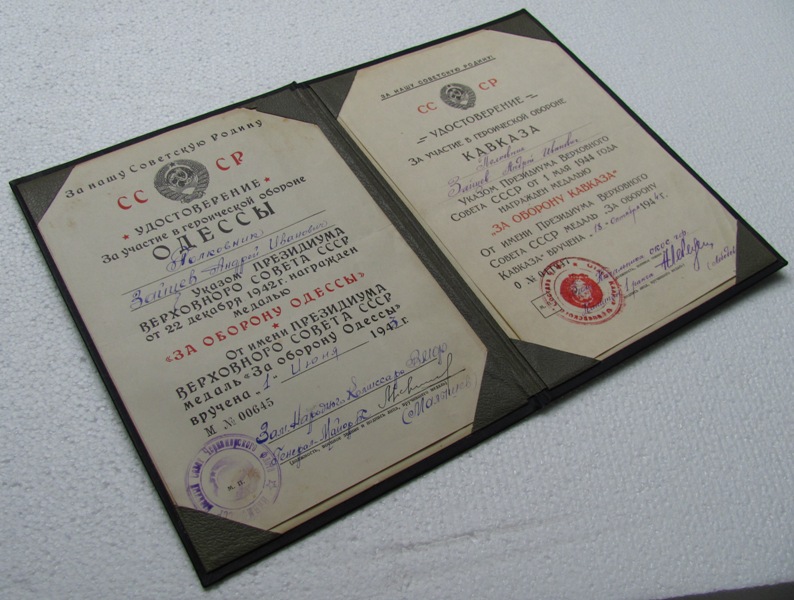 За нашу Советскую Родину
СС СР
УДОСТОВЕРЕНИЕ
За участие в героической обороне
ОДЕССЫ
Полковник
Зайцев Андрей Иванович
Указом ПРЕЗИДИУМА
ВЕРХОВНОГО СОВЕТА СССР
от 22 декабря 1942 г. награжден
медалью
«ЗА ОБОРОНУ ОДЕССЫ»
От имени ПРЕЗИДИУМА
ВЕРХОВНОГО СОВЕТА СССР
медаль «За оборону Одессы»
вручена „1“ Июня 1943 г.
М № 00645
Зам Народн Комиссара
Генерал-Майор
М. П.
ЗА НАШУ СОВЕТСКУЮ РОДИНУ
СС СР
УДОСТОВЕРЕНИЕ
ЗА УЧАСТИЕ В ГЕРОИЧЕСКОЙ ОБОРОНЕ
КАВКАЗА
Полковник
Зайцев Андрей Иванович
УКАЗОМ ПРЕЗИДИУМА ВЕРХОВНОГО
СОВЕТА СССР ОТ 1 МАЯ 1944 ГОДА
НАГРАЖДЕН МЕДАЛЬЮ
„ЗА ОБОРОНУ КАВКАЗА“
ОТ ИМЕНИ ПРЕЗИДИУМА ВЕРХОВНОГО
СОВЕТА СССР МЕДАЛЬ „ЗА ОБОРОНУ
КАВКАЗА“ ВРУЧЕНА „18“ октября 194 г.
О №